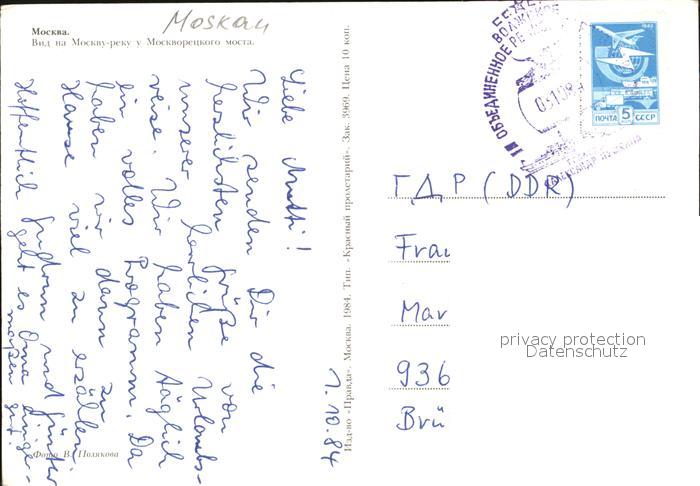 Moskau
Москва.
Вид на Москву-реку у Москворецкого моста.
Liebe Mutti!
Wir senden Dir die
herzlichsten Grüße von
unserer herrlichen Urlaubs-
reise. Wir haben täglich
ein volles Programm. Da
haben wir dann zu
Hause viel zu erzählen.
Hoffentlich geht es Oma einige-
maßen gut.
Gudrun und Günter
1.10.84
Фото В. Полякова
Изд-во «Правда». Москва. 1984. Тип. «Красный пролетарий». Зак. 3969. Цена 10 коп.
ВОЛЖСКОЕ
ОБЪЕДИНЕННОЕ РЕ
АЛЕКСАНДР ПУШКИН
1982
ПОЧТА 5 СССР
ГДР (DDR)
Frau
Mar
936
Brü
privacy protection
Datenschutz